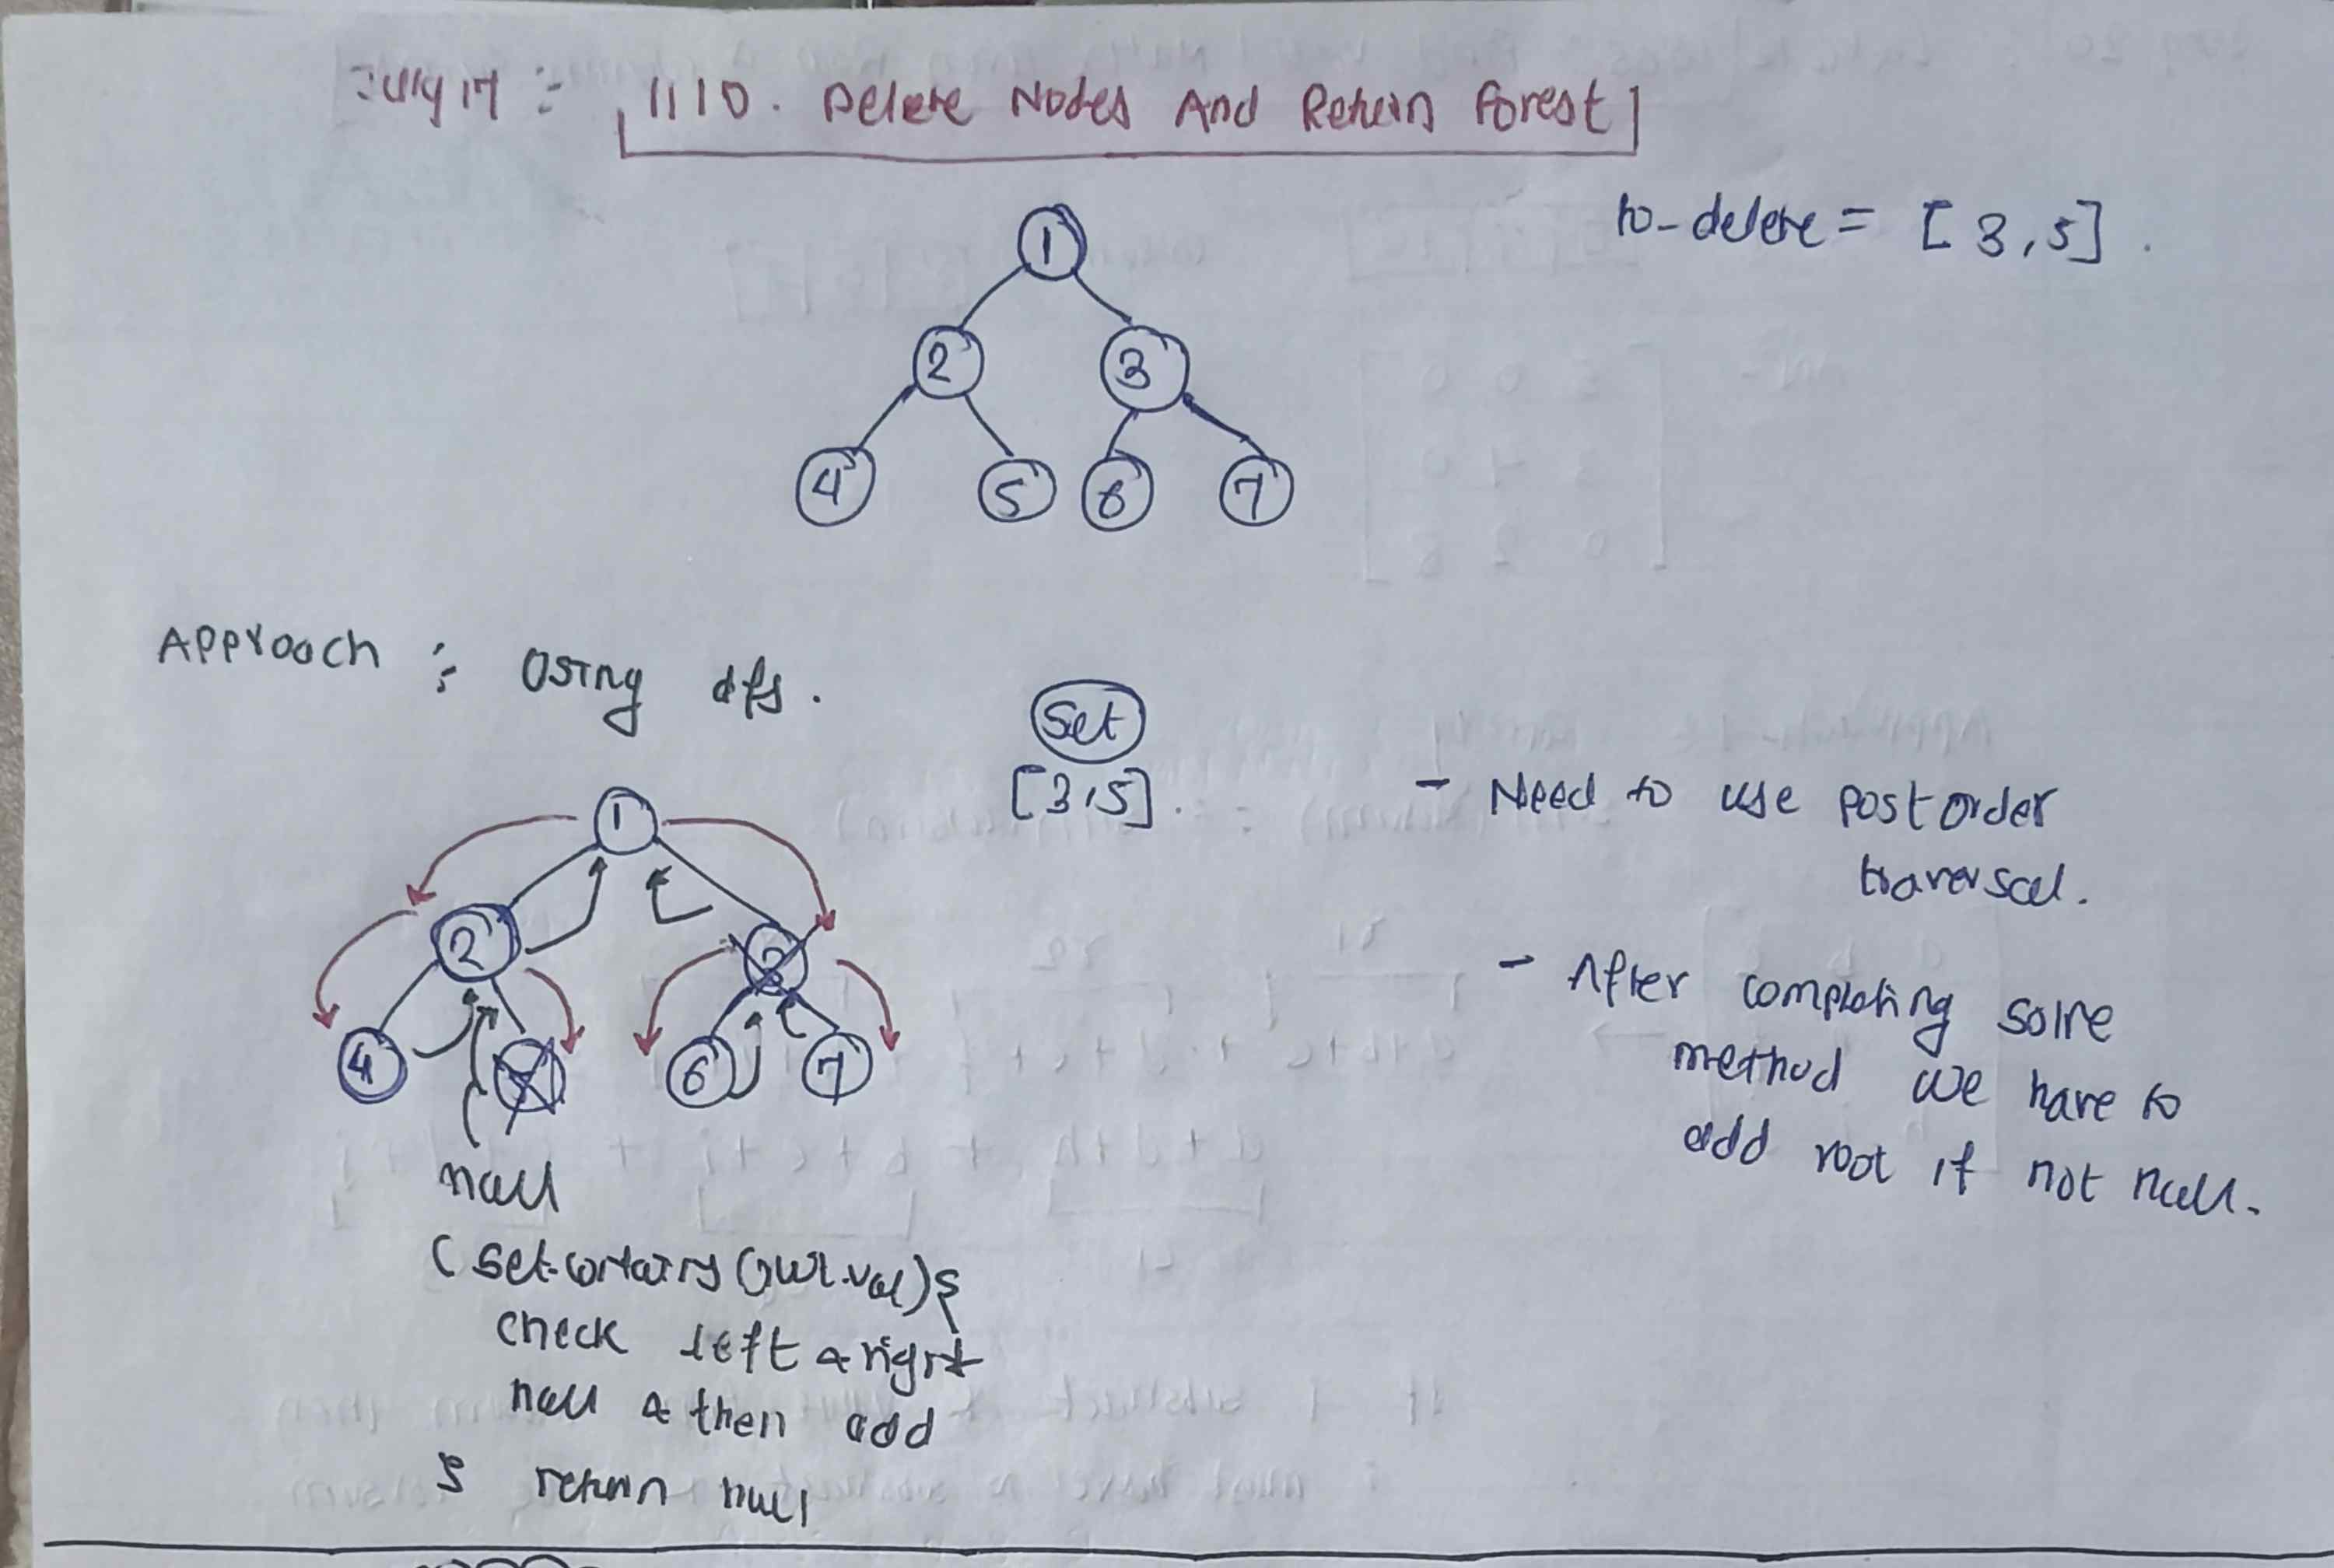 July 17 :- 1110. Delete Nodes And Return Forest
to-delete = [3,5].
1
2 3
4 5 6 7
Approach :- Using dfs.
Set
[3,5].
1
2 3
4 5 6 7
null
(set.contains(curr.val){
check left & right
null & then add
} return null
- Need to use postorder
traversal.
- After completing solve
method we have to
add root if not null.